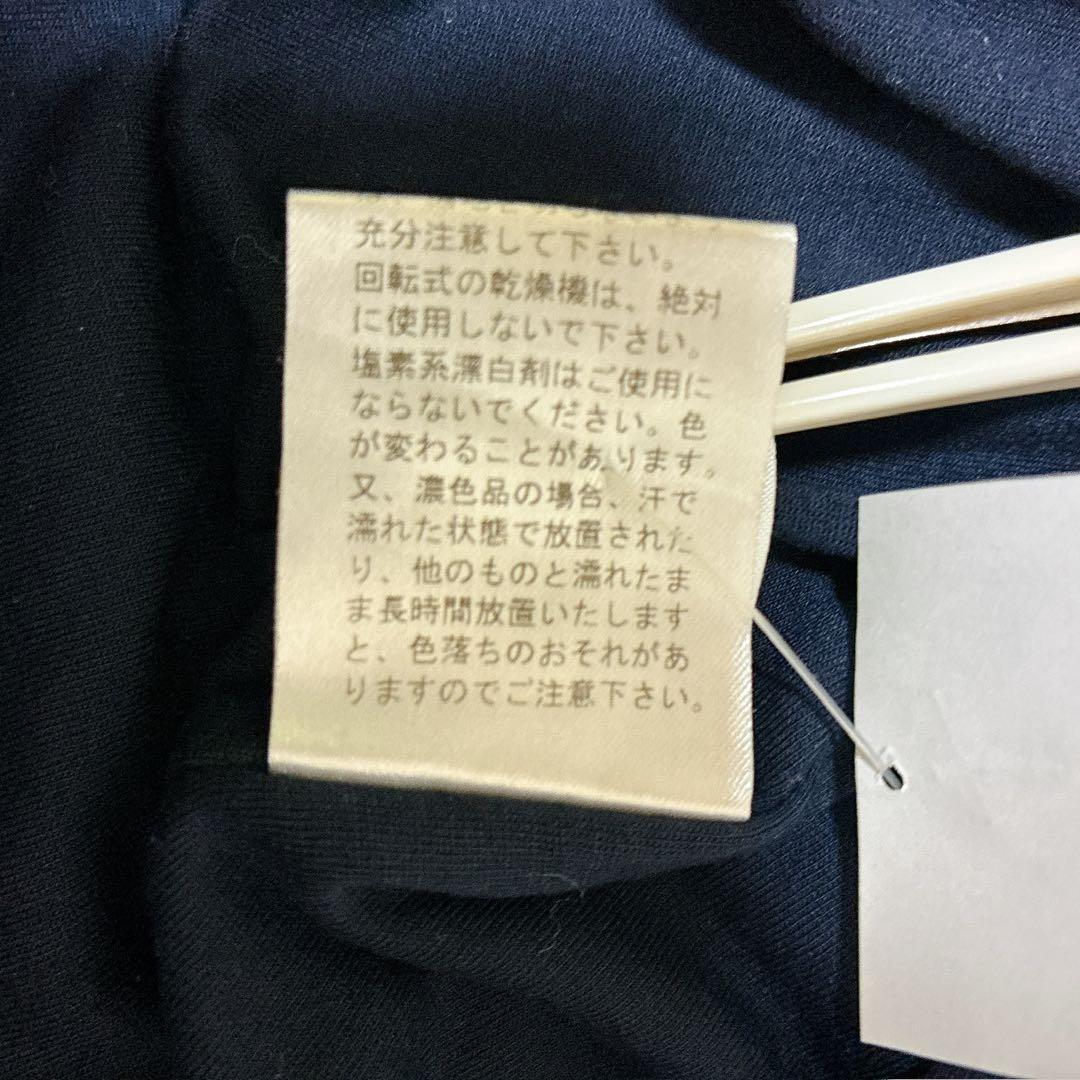 充分注意して下さい。
回転式の乾燥機は、絶対
に使用しないで下さい。
塩素系漂白剤はご使用に
ならないでください。色
が変わることがあります。
又、濃色品の場合、汗で
濡れた状態で放置された
り、他のものと濡れたま
ま長時間放置いたします
と、色落ちのおそれがあ
りますのでご注意下さい。